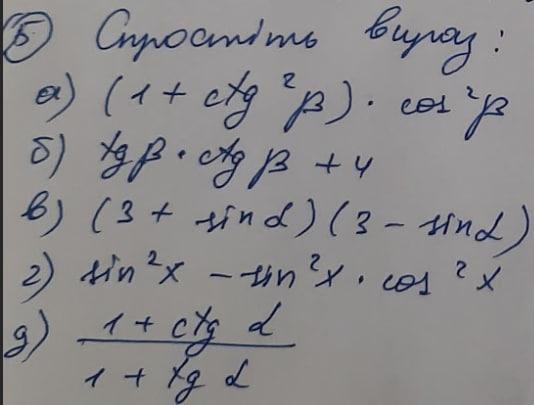 Б Спростіть вираз:
а) (1 + ctg²β) · cos²β
б) tgβ · ctgβ + 4
в) (3 + sinα)(3 − sinα)
г) sin²x − sin²x · cos²x
д) (1 + ctg α) / (1 + tg α)